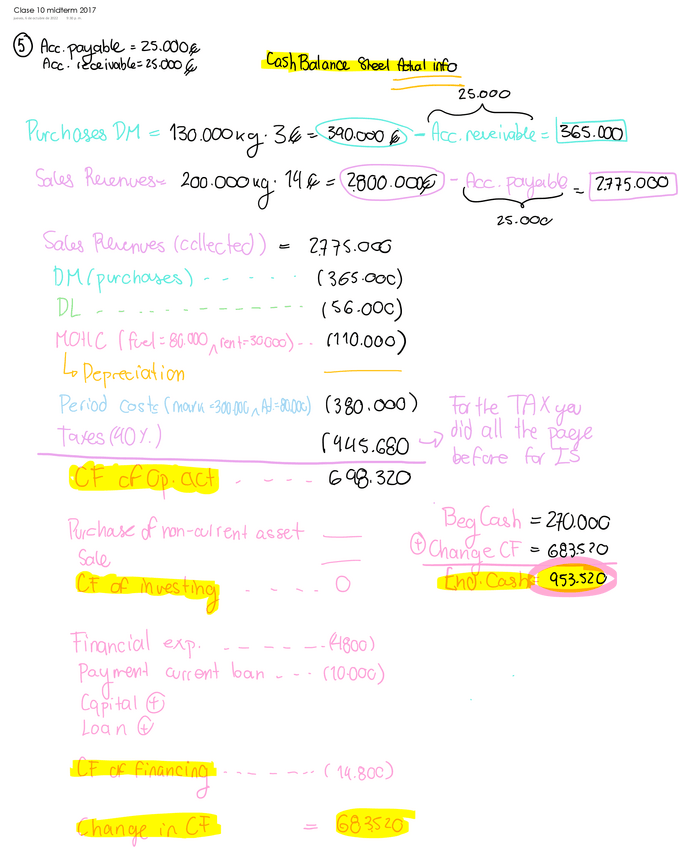 Clase 10 midterm 2017
⑤ Acc. payable = 25.000€
Acc. receivable = 25.000€
Cash Balance Sheet total info
25.000
Purchases DM = 130.000kg · 3€ = 390.000€ - Acc. receivable = 365.000
Sales Revenues = 200.000kg · 14€ = 2.800.000€ - Acc. payable = 2.775.000
25.000
Sales Revenues (collected) = 2.775.000
DM (purchases) - - - - - (365.000)
DL - - - - - - - - - - - - (56.000)
MOHC (fuel = 80.000 ∧ rent = 30000) - - (110.000)
↳ Depreciation
Period costs (mark = 300.000 ∧ Ad = 80.000) (380.000)
Taxes (40%) (945.680 → For the TAX you did all the page before for IS
CF of Op. act - - - - 698.320
Purchase of non-current asset
Sale
CF of investing - - - - - 0
Beg Cash = 270.000
⊕ Change CF = 683520
End. Cash = 953.520
Financial exp. - - - - - - (4800)
Payment current ban - - - (10.000)
Capital ⊕
Loan ⊕
CF of financing - - - - - - - (14.800)
Change in CF = 683520